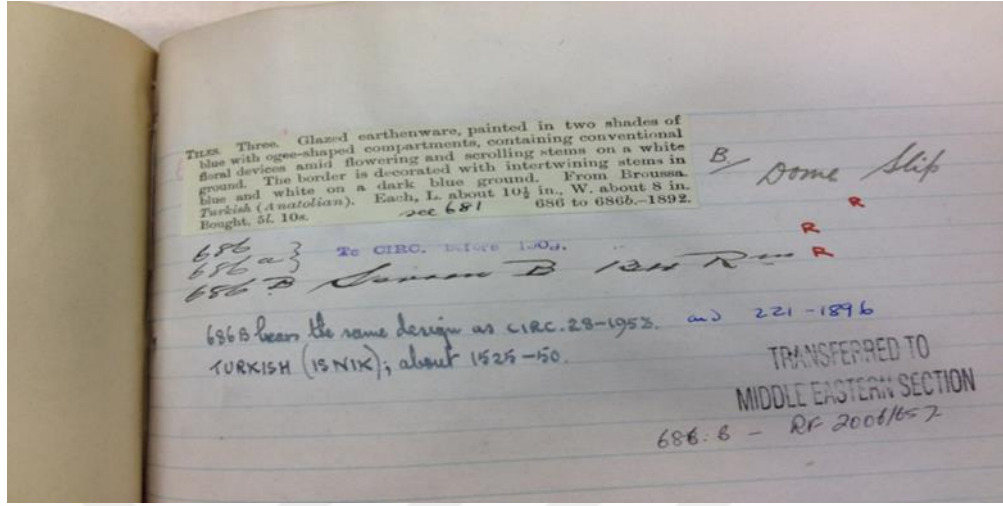 TILES. Three. Glazed earthenware, painted in two shades of
blue with ogee-shaped compartments, containing conventional
floral devices amid flowering and scrolling stems on a white
ground. The border is decorated with intertwining stems in
blue and white on a dark blue ground. From Broussa.
Turkish (Anatolian). Each, L. about 10½ in., W. about 8 in.
Bought, 5l. 10s. 686 to 686b.-1892.
see 681
B/ Dome Slip
R
R
R
686
686 a }
To CIRC. before 1909.
686 B B Rm
686B bears the same design as CIRC.28-1958. and 221-1896
TURKISH (ISNIK); about 1525-50.
TRANSFERRED TO
MIDDLE EASTERN SECTION
686.B - RF 2006/657